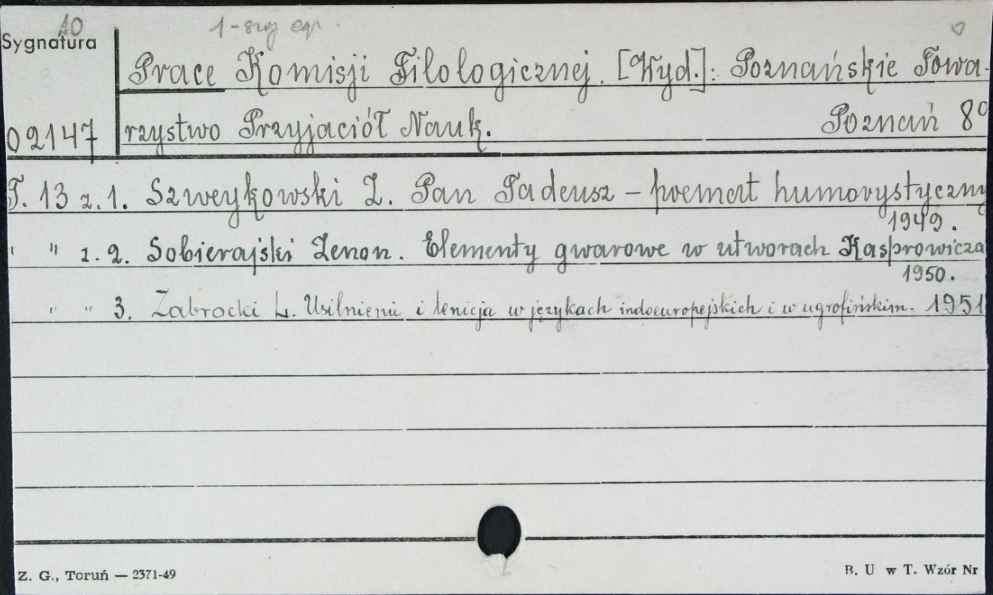 10
1-szy egz.
Sygnatura
Prace Komisji Filologicznej. [Wyd.]: Poznańskie Towa-
02147
rzystwo Przyjaciół Nauk. Poznań 8°
T. 13 z. 1. Szweykowski Z. Pan Tadeusz – poemat humorystyczny
1949.
" " z. 2. Sobierajski Zenon. Elementy gwarowe w utworach Kasprowicza
1950.
" " 3. Zabrocki L. Usilnienie i lenicja w językach indoeuropejskich i w ugrofińskim. 1951
Z. G., Toruń — 2371-49
B. U w T. Wzór Nr